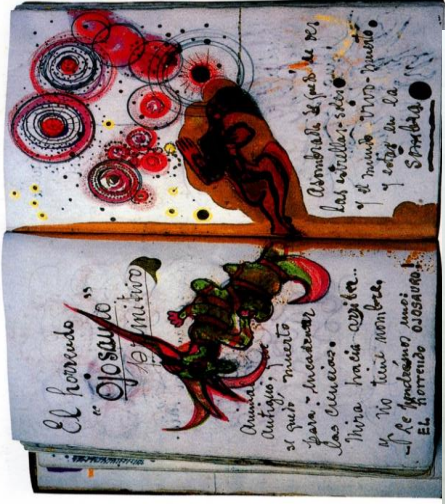 El horrendo
"Ojosauro"
primitivo
Animal
antiguo
se quedo muerto
para encadenar
las ciencias.
Mira hacia arriba..
y no tiene nombre.
-Le pondremos uno:
EL horrendo OJOSAURO!
Asombrada se quedó de ver
las estrellas-soles
y el mundo vivo-muerto
y estar en la
sombra